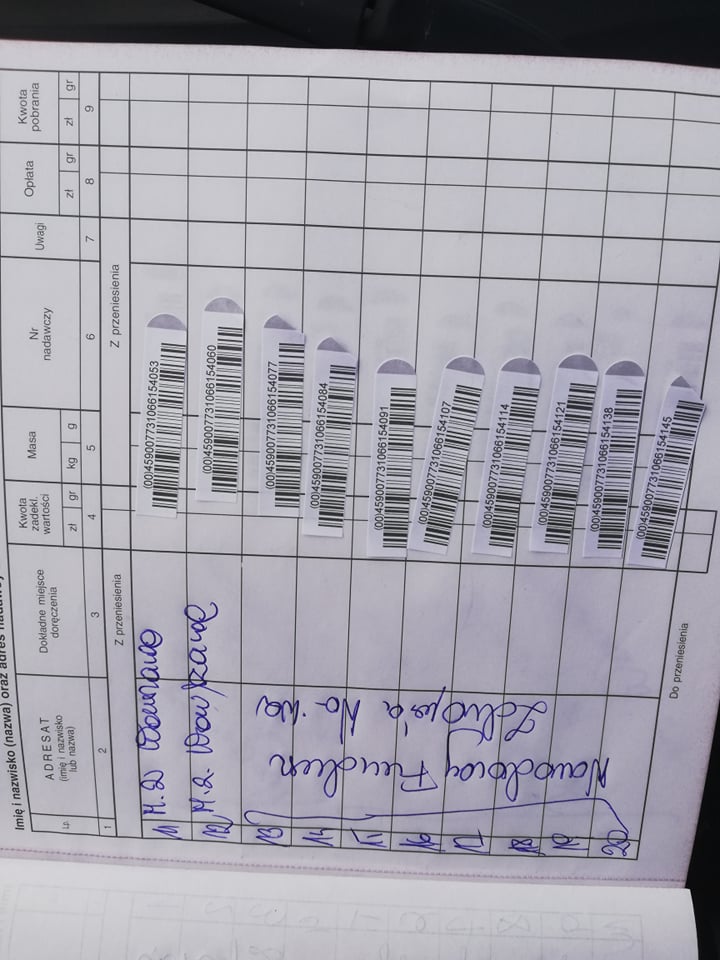 Imię i nazwisko (nazwa) oraz adres
Lp.
ADRESAT
(imię i nazwisko
lub nazwa)
Dokładne miejsce
doręczenia
Kwota
zadekl.
wartości
zł gr
Masa
kg g
Nr
nadawczy
Uwagi
Opłata
zł gr
Kwota
pobrania
zł gr
1 2 3 4 5 6 7 8 9
Z przeniesienia
Z przeniesienia
11 (00)459007731066154053
12 (00)459007731066154060
13 (00)459007731066154077
14 (00)459007731066154084
(00)459007731066154091
(00)459007731066154107
(00)459007731066154114
(00)459007731066154121
(00)459007731066154138
20 (00)459007731066154145
Narodowy Fundusz
Zdrowia
Do przeniesienia